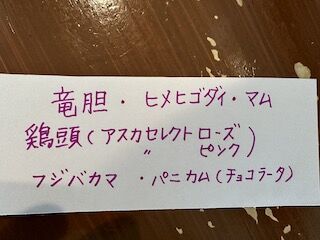 竜胆・ヒメヒゴダイ・マム
鶏頭(アスカセレクトローズ
〃 ピンク)
フジバカマ ・パニカム(チョコラータ)